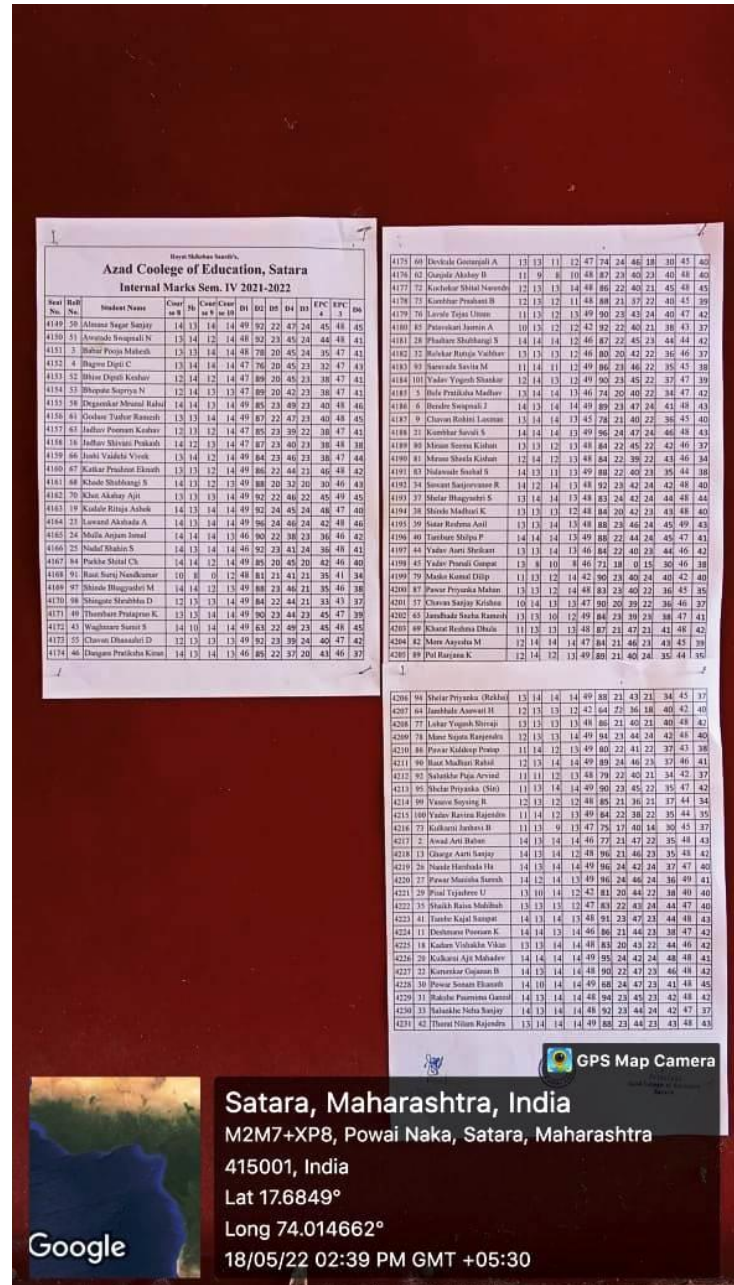 Rayat Shikshan Sansth's,
Azad Coolege of Education, Satara
Internal Marks Sem. IV 2021-2022
Seat No. Roll No. Student Name Cour se 8 Cour se 9 Cour se 10 D1 D2 D5 D4 D3 EPC 4 EPC 3 D6
4149 50 Almane Sagar Sanjay 14 13 14 14 49 92 22 47 24 45 48 45
4150 51 Awatade Swapnali N 13 14 12 14 48 92 23 45 24 44 48 41
4151 3 Babar Pooja Mahesh 13 13 14 14 48 78 20 45 24 35 47 41
4152 4 Bagwe Dipti C 13 13 14 14 47 76 20 45 23 32 47 43
4153 52 Bhise Dipali Keshav 12 14 12 14 47 89 20 45 23 38 47 41
4154 53 Bhopate Supriya N 12 14 13 13 47 89 20 42 23 38 47 41
4155 58 Degaonkar Mrunal Rahul 14 14 13 14 49 85 23 49 23 40 48 46
4156 61 Godase Tushar Ramesh 13 13 14 14 49 87 22 47 23 40 48 45
4157 63 Jadhav Poonam Keshav 12 13 12 14 47 85 23 39 22 38 47 41
4158 16 Jadhav Shivani Prakash 14 12 13 14 47 87 23 40 23 38 48 38
4159 66 Joshi Vaidehi Vivek 13 14 12 14 49 84 23 46 23 38 47 44
4160 67 Katkar Prashant Eknath 13 13 12 14 49 86 22 44 21 46 48 42
4161 68 Khade Shubhangi S 13 14 14 13 49 88 20 32 20 30 46 43
4162 70 Khot Akshay Ajit 13 13 13 14 49 92 22 46 22 45 49 45
4163 19 Kudale Rituja Ashok 14 13 14 14 49 92 24 45 24 48 47 40
4164 23 Lawand Akshada A 14 13 14 14 49 96 24 46 24 42 48 46
4165 24 Mulla Anjum Ismal 14 14 14 13 46 90 22 38 23 36 46 42
4166 25 Nadaf Shahin S 14 13 14 14 46 92 23 41 24 36 48 41
4167 84 Parkhe Shital Ch 14 14 12 14 49 85 20 45 20 42 46 40
4168 91 Raut Suraj Nandkumar 10 8 0 12 48 81 21 41 21 35 41 34
4169 97 Shinde Bhagyashri M 14 14 12 13 49 88 23 46 21 35 46 38
4170 98 Shingate Shraddha D 12 13 13 14 49 84 22 44 21 33 43 37
4171 49 Thombare Prataprao K 13 13 14 14 49 90 23 44 23 45 47 39
4172 43 Waghmare Sumit S 14 10 14 14 49 63 22 49 23 45 48 45
4173 55 Chavan Dhanashri D 12 13 13 13 49 92 23 39 24 40 47 42
4174 46 Dangare Pratiksha Kiran 14 13 14 13 46 85 22 37 20 43 46 37
4175 60 Devkule Geetanjali A 13 13 11 12 47 74 24 46 18 30 45 40
4176 62 Gunjale Akshay B 11 9 8 10 48 87 23 40 23 40 48 40
4177 72 Kochekar Shital Narendr 12 13 13 14 48 86 22 40 21 45 48 45
4178 73 Kumbhar Prashant B 12 13 12 11 48 88 21 37 22 40 45 39
4179 76 Lavale Tejas Uttam 11 13 12 13 49 90 23 43 24 40 47 42
4180 85 Patavekari Jasmin A 10 13 12 12 42 92 22 40 21 38 43 37
4181 28 Phadtare Shubhangi S 12 14 14 12 46 87 22 45 23 44 44 42
4182 32 Relekar Rutuja Vaibhav 13 13 13 12 46 80 20 42 22 36 46 37
4183 93 Saravade Savita M 11 14 11 12 49 86 23 46 22 35 45 38
4184 101 Yadav Yogesh Shankar 12 14 13 12 49 90 23 45 22 37 47 39
4185 5 Bule Pratiksha Madhav 13 14 13 14 46 74 20 40 22 34 47 42
4186 6 Bendre Swapnali J 14 13 14 14 49 89 23 47 24 41 48 43
4187 9 Chavan Rohini Laxman 13 13 14 13 45 78 21 40 22 36 45 40
4188 21 Kumbhar Savali S 14 14 14 13 49 96 24 47 24 46 48 43
4189 80 Mirase Seema Kishan 12 13 12 13 48 84 22 45 22 42 46 37
4190 81 Mirase Sheela Kishan 12 14 12 13 48 84 22 39 22 43 46 34
4191 83 Nalawade Snehal S 14 13 11 13 49 88 22 40 23 35 44 38
4192 34 Sawant Sanjeevanee R 14 12 14 13 48 92 23 42 24 42 48 40
4193 37 Shelar Bhagyashri S 13 14 14 13 48 83 24 42 24 44 48 44
4194 38 Shinde Madhuri K 14 13 13 12 48 84 20 42 23 43 48 40
4195 39 Sutar Reshma Anil 14 13 14 13 48 88 23 46 24 45 49 43
4196 40 Tambare Shilpa P 14 14 14 13 49 88 22 44 24 45 47 41
4197 44 Yadav Aarti Shrikant 13 13 14 13 46 84 22 40 23 44 46 42
4198 45 Yadav Pranali Ganpat 13 8 10 8 46 71 18 0 15 30 46 38
4199 79 Maske Komal Dilip 11 13 12 14 42 90 23 40 24 40 42 40
4200 87 Pawar Priyanka Mahan 13 13 12 14 48 83 23 40 22 36 45 35
4201 57 Chavan Sanjay Krishna 10 14 13 13 47 90 20 39 22 36 46 37
4202 65 Jamdhade Sneha Ramesh 13 13 10 12 49 84 23 39 23 38 47 41
4203 69 Kharat Reshma Dhula 11 13 13 13 48 87 21 47 21 41 48 42
4204 82 More Aayesha M 12 14 14 14 47 84 21 46 23 43 45 39
4205 89 Pol Ranjana K 12 14 12 13 49 89 21 40 24 35 44 35
4206 94 Shelar Priyanka (Rekha) 13 14 14 14 49 88 21 43 21 34 45 37
4207 64 Jambhale Asawari H 12 13 13 12 42 64 22 36 18 40 42 40
4208 77 Lohar Yogesh Shivaji 13 13 13 13 48 86 21 40 21 40 48 42
4209 78 Mane Sujata Ranjendra 12 13 13 14 49 94 23 44 24 42 48 40
4210 86 Pawar Kuldeep Pratap 11 14 12 13 49 80 22 41 22 37 43 38
4211 90 Raut Madhuri Rahul 12 13 14 14 49 89 24 46 23 37 46 41
4212 92 Salunkhe Puja Arvind 11 11 12 13 48 79 22 40 21 34 42 37
4213 95 Shelar Priyanka (Sin) 11 13 14 14 49 90 23 45 22 35 47 42
4214 99 Vasave Soysing R 12 13 12 12 48 85 21 36 21 37 44 34
4215 100 Yadav Ravina Rajendra 11 14 12 13 49 84 22 38 22 35 44 35
4216 73 Kulkarni Janhavi B 11 13 9 13 47 75 17 40 14 30 45 37
4217 2 Awad Arti Baban 14 13 14 14 46 77 21 47 22 35 48 43
4218 13 Gharge Aarti Sanjay 14 13 14 12 48 96 21 46 23 35 48 42
4219 26 Nande Harshada Ha 14 13 14 14 49 96 24 42 24 37 47 40
4220 27 Pawar Manisha Suresh 14 12 14 13 49 96 24 46 24 36 49 41
4221 29 Pisal Tejashree U 13 10 14 12 42 81 20 44 22 38 40 40
4222 35 Shaikh Raisa Mahibub 13 13 13 12 47 83 22 43 24 44 47 40
4223 41 Tambe Kajal Sampat 14 13 14 13 48 91 23 47 23 44 48 43
4224 11 Deshmane Poonam K 14 13 14 14 46 86 21 44 23 38 47 42
4225 18 Kadam Vishakha Vikas 13 13 14 14 48 83 20 43 22 44 46 42
4226 20 Kulkarni Ajit Mahadev 14 14 14 14 49 95 24 42 24 48 48 41
4227 22 Kurunkar Gajanan B 14 13 14 14 48 90 22 47 23 46 48 42
4228 30 Powar Sonam Ekanath 14 10 14 14 49 68 24 47 23 41 48 45
4229 31 Rakshe Paurnima Ganesh 14 13 14 14 48 94 23 45 23 42 48 42
4230 33 Salunkhe Neha Sanjay 14 13 14 14 48 92 23 44 24 42 47 37
4231 42 Thorat Nilam Rajendra 13 14 14 14 49 88 23 44 23 43 48 43
GPS Map Camera
Satara, Maharashtra, India
M2M7+XP8, Powai Naka, Satara, Maharashtra
415001, India
Lat 17.6849°
Long 74.014662°
18/05/22 02:39 PM GMT +05:30
Google